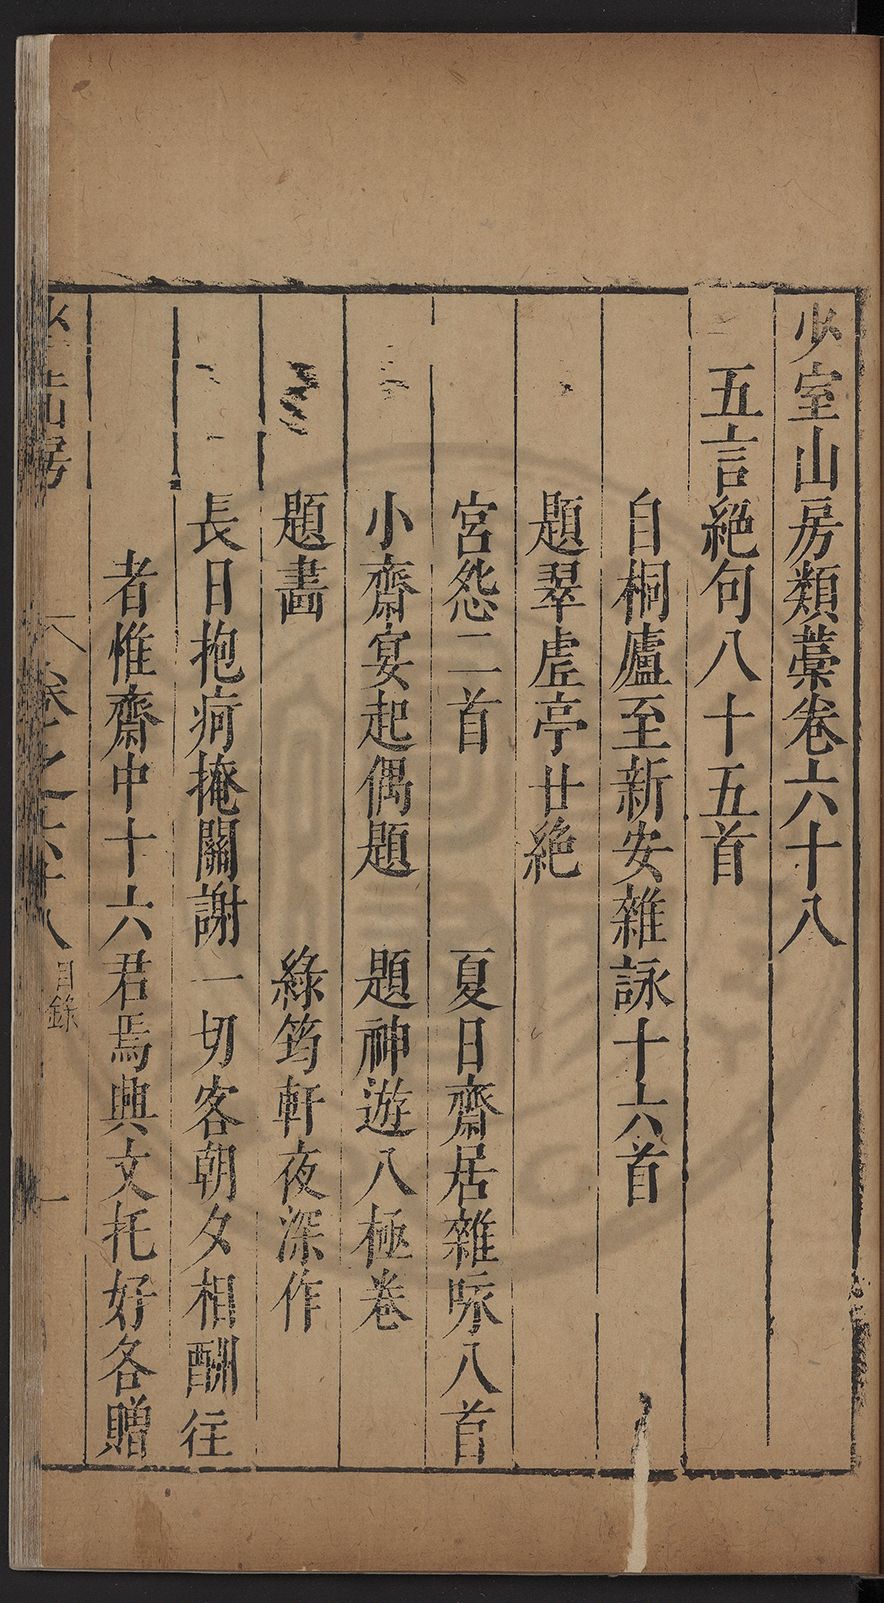 少室山房類藁卷六十八
五言絶句八十五首
自桐廬至新安雜詠十六首
題翠虗亭廿絶
宮怨二首 夏日齋居雜咏八首
小齋宴起偶題 題神遊八極卷
題畵 綠筠軒夜深作
長日抱疴掩關謝一切客朝夕相酬往
者惟齋中十六君焉興文托好各贈
山房 卷之六十八 目錄 一